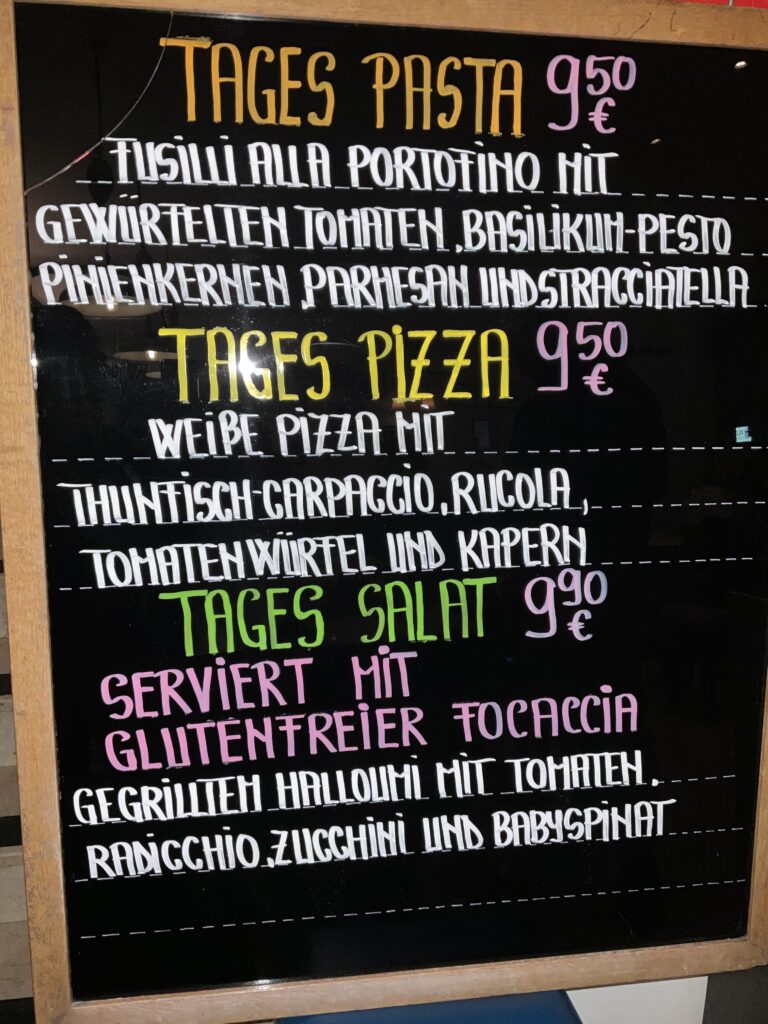 TAGES PASTA 9,50 €
FUSILLI ALLA PORTOFINO MIT
GEWÜRFELTEN TOMATEN, BASILIKUM-PESTO
PINIENKERNEN, PARMESAN UND STRACCIATELLA
TAGES PIZZA 9,50 €
WEIßE PIZZA MIT
THUNFISCH-CARPACCIO, RUCOLA,
TOMATENWÜRFEL UND KAPERN
TAGES SALAT 9,90 €
SERVIERT MIT
GLUTENFREIER FOCACCIA
GEGRILLTEM HALLOUMI MIT TOMATEN,
RADICCHIO, ZUCCHINI UND BABYSPINAT